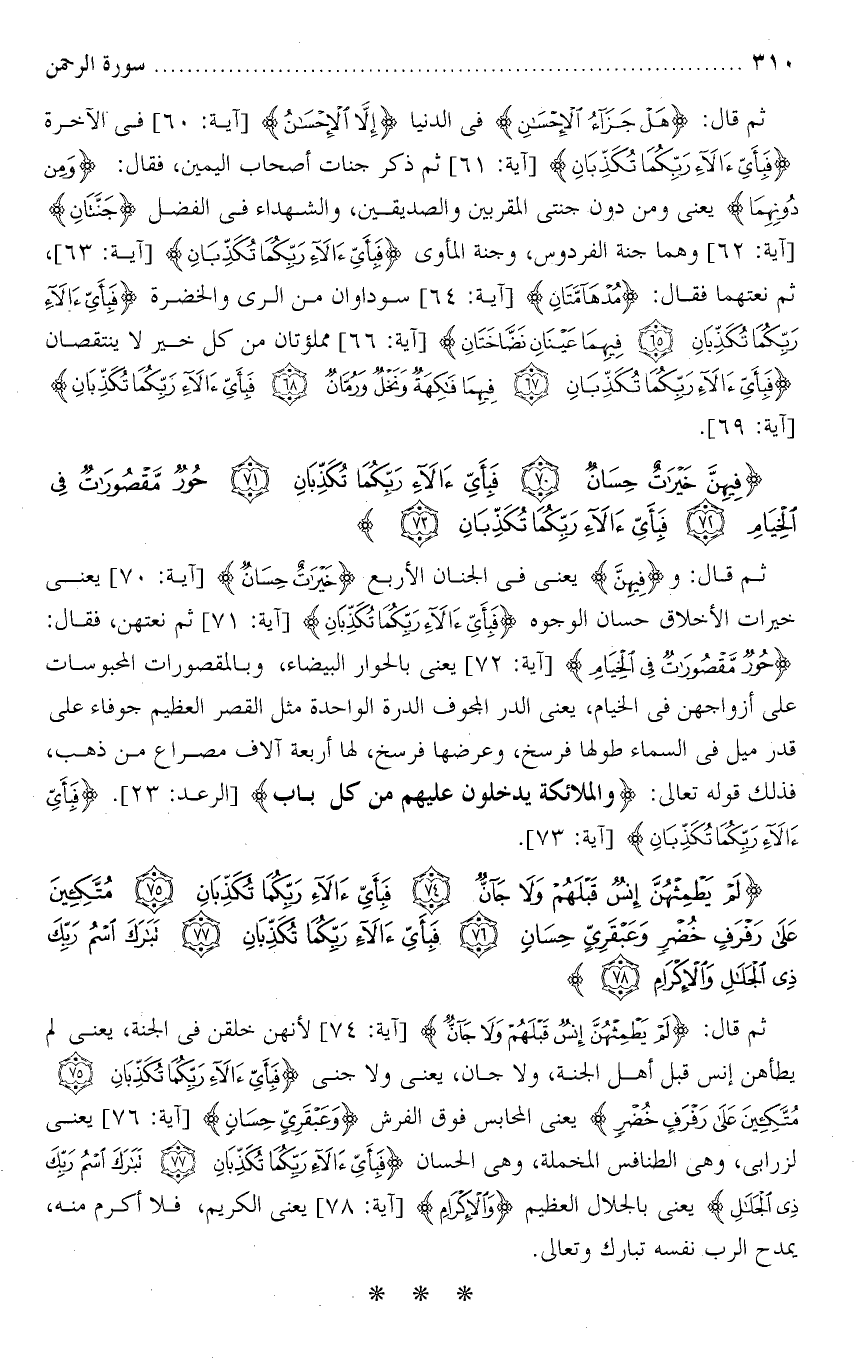 ٣١٠ ........................................................................ سورة الرحمن
ثم قال: ﴿هَلْ جَزَآءُ ٱلْإِحْسَٰنِ﴾ فى الدنيا ﴿إِلَّا ٱلْإِحْسَٰنُ﴾ [آية: ٦٠] فـى الآخـرة
﴿فَبِأَىِّ ءَالَآءِ رَبِّكُمَا تُكَذِّبَانِ﴾ [آية: ٦١] ثم ذكر جنات أصحاب اليمين، فقال: ﴿وَمِن
دُونِهِمَا﴾ يعنى ومن دون جنتى المقربين والصديقـين، والشهداء فـى الفضـل ﴿جَنَّتَانِ﴾
[آية: ٦٢] وهما جنة الفردوس، وجنة المأوى ﴿فَبِأَىِّ ءَالَآءِ رَبِّكُمَا تُكَذِّبَانِ﴾ [آيـة: ٦٣]،
ثم نعتهما فقـال: ﴿مُدْهَآمَّتَانِ﴾ [آيـة: ٦٤] سـوداوان مـن الـرى والخضـرة ﴿فَبِأَىِّ ءَالَآءِ
رَبِّكُمَا تُكَذِّبَانِ ٦٥ فِيهِمَا عَيْنَانِ نَضَّاخَتَانِ﴾ [آية: ٦٦] مملؤتان من كل خـير لا ينتقصـان
﴿فَبِأَىِّ ءَالَآءِ رَبِّكُمَا تُكَذِّبَانِ ٦٧ فِيهِمَا فَٰكِهَةٌ وَنَخْلٌ وَرُمَّانٌ ٦٨ فَبِأَىِّ ءَالَآءِ رَبِّكُمَا تُكَذِّبَانِ﴾
[آية: ٦٩].
﴿فِيهِنَّ خَيْرَٰتٌ حِسَانٌ ٧٠ فَبِأَىِّ ءَالَآءِ رَبِّكُمَا تُكَذِّبَانِ ٧١ حُورٌ مَّقْصُورَٰتٌ فِى
ٱلْخِيَامِ ٧٢ فَبِأَىِّ ءَالَآءِ رَبِّكُمَا تُكَذِّبَانِ ٧٣ ﴾
ثـم قـال: و﴿فِيهِنَّ﴾ يعنـى فـى الجنـان الأربـع ﴿خَيْرَٰتٌ حِسَانٌ﴾ [آيـة: ٧٠] يعنــى
خيرات الأخلاق حسان الوجوه ﴿فَبِأَىِّ ءَالَآءِ رَبِّكُمَا تُكَذِّبَانِ﴾ [آية: ٧١] ثم نعتهن، فقـال:
﴿حُورٌ مَّقْصُورَٰتٌ فِى ٱلْخِيَامِ﴾ [آية: ٧٢] يعنى بالحوار البيضاء، وبـالمقصورات المحبوسـات
على أزواجهن فى الخيام، يعنى الدر المجوف الدرة الواحدة مثل القصر العظيم جوفاء على
قدر ميل فى السماء طولها فرسخ، وعرضها فرسخ، لها أربعة آلاف مصـراع مـن ذهـب،
فذلك قوله تعالى: ﴿والملائكة يدخلون عليهم من كل بـاب﴾ [الرعـد: ٢٣]. ﴿فَبِأَىِّ
ءَالَآءِ رَبِّكُمَا تُكَذِّبَانِ﴾ [آية: ٧٣].
﴿لَمْ يَطْمِثْهُنَّ إِنسٌ قَبْلَهُمْ وَلَا جَآنٌّ ٧٤ فَبِأَىِّ ءَالَآءِ رَبِّكُمَا تُكَذِّبَانِ ٧٥ مُتَّكِـِٔينَ
عَلَىٰ رَفْرَفٍ خُضْرٍ وَعَبْقَرِىٍّ حِسَانٍ ٧٦ فَبِأَىِّ ءَالَآءِ رَبِّكُمَا تُكَذِّبَانِ ٧٧ تَبَٰرَكَ ٱسْمُ رَبِّكَ
ذِى ٱلْجَلَٰلِ وَٱلْإِكْرَامِ ٧٨ ﴾
ثـم قال: ﴿لَمْ يَطْمِثْهُنَّ إِنسٌ قَبْلَهُمْ وَلَا جَآنٌّ﴾ [آية: ٧٤] لأنهن خلقن فى الجنة، يعنـى لم
يطأهن إنس قبل أهـل الجنـة، ولا جـان، يعنـى ولا جنـى ﴿فَبِأَىِّ ءَالَآءِ رَبِّكُمَا تُكَذِّبَانِ ٧٥
مُتَّكِـِٔينَ عَلَىٰ رَفْرَفٍ خُضْرٍ﴾ يعنى المحابس فوق الفرش ﴿وَعَبْقَرِىٍّ حِسَانٍ﴾ [آية: ٧٦] يعنــى
لزرابى، وهى الطنافس المخملة، وهى الحسان ﴿فَبِأَىِّ ءَالَآءِ رَبِّكُمَا تُكَذِّبَانِ ٧٧ تَبَٰرَكَ ٱسْمُ رَبِّكَ
ذِى ٱلْجَلَٰلِ﴾ يعنى بالجلال العظيم ﴿وَٱلْإِكْرَامِ﴾ [آية: ٧٨] يعنى الكريم، فـلا أكـرم منـه،
يمدح الرب نفسه تبارك وتعالى.
* * *